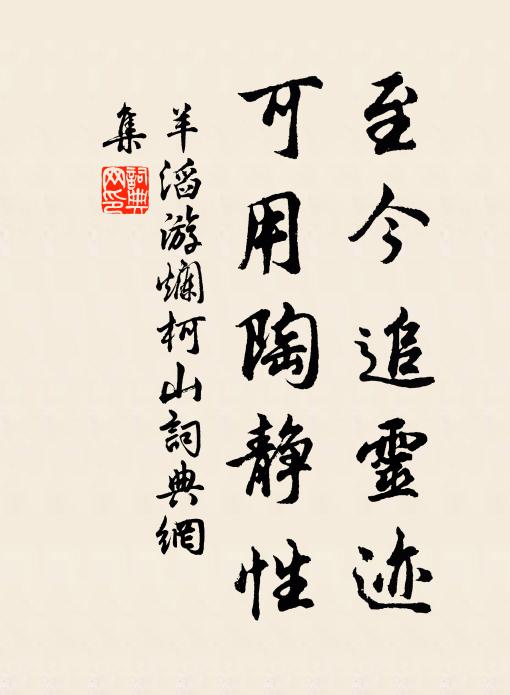 至今追靈迹
可用陶静性
羊滔游爛柯山詞典網
集
詞典網印